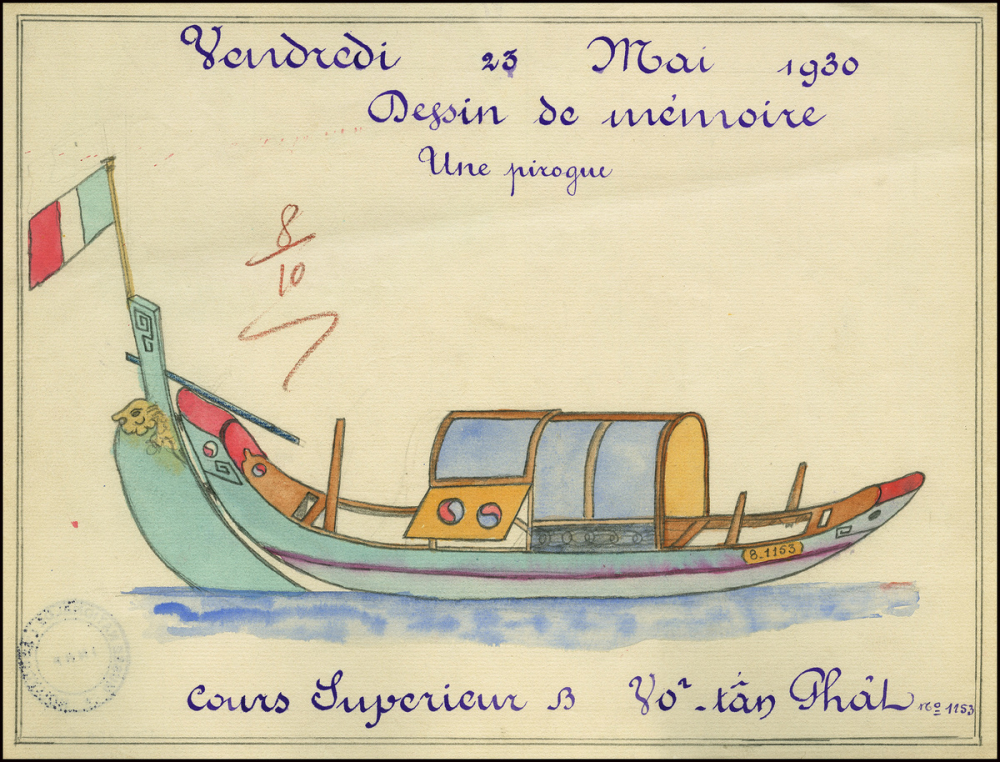 Vendredi 23 Mai 1930
Dessin de mémoire
Une pirogue
8
10
B.1153
Cours Superieur B Võ-tấn Phát Nº 1153